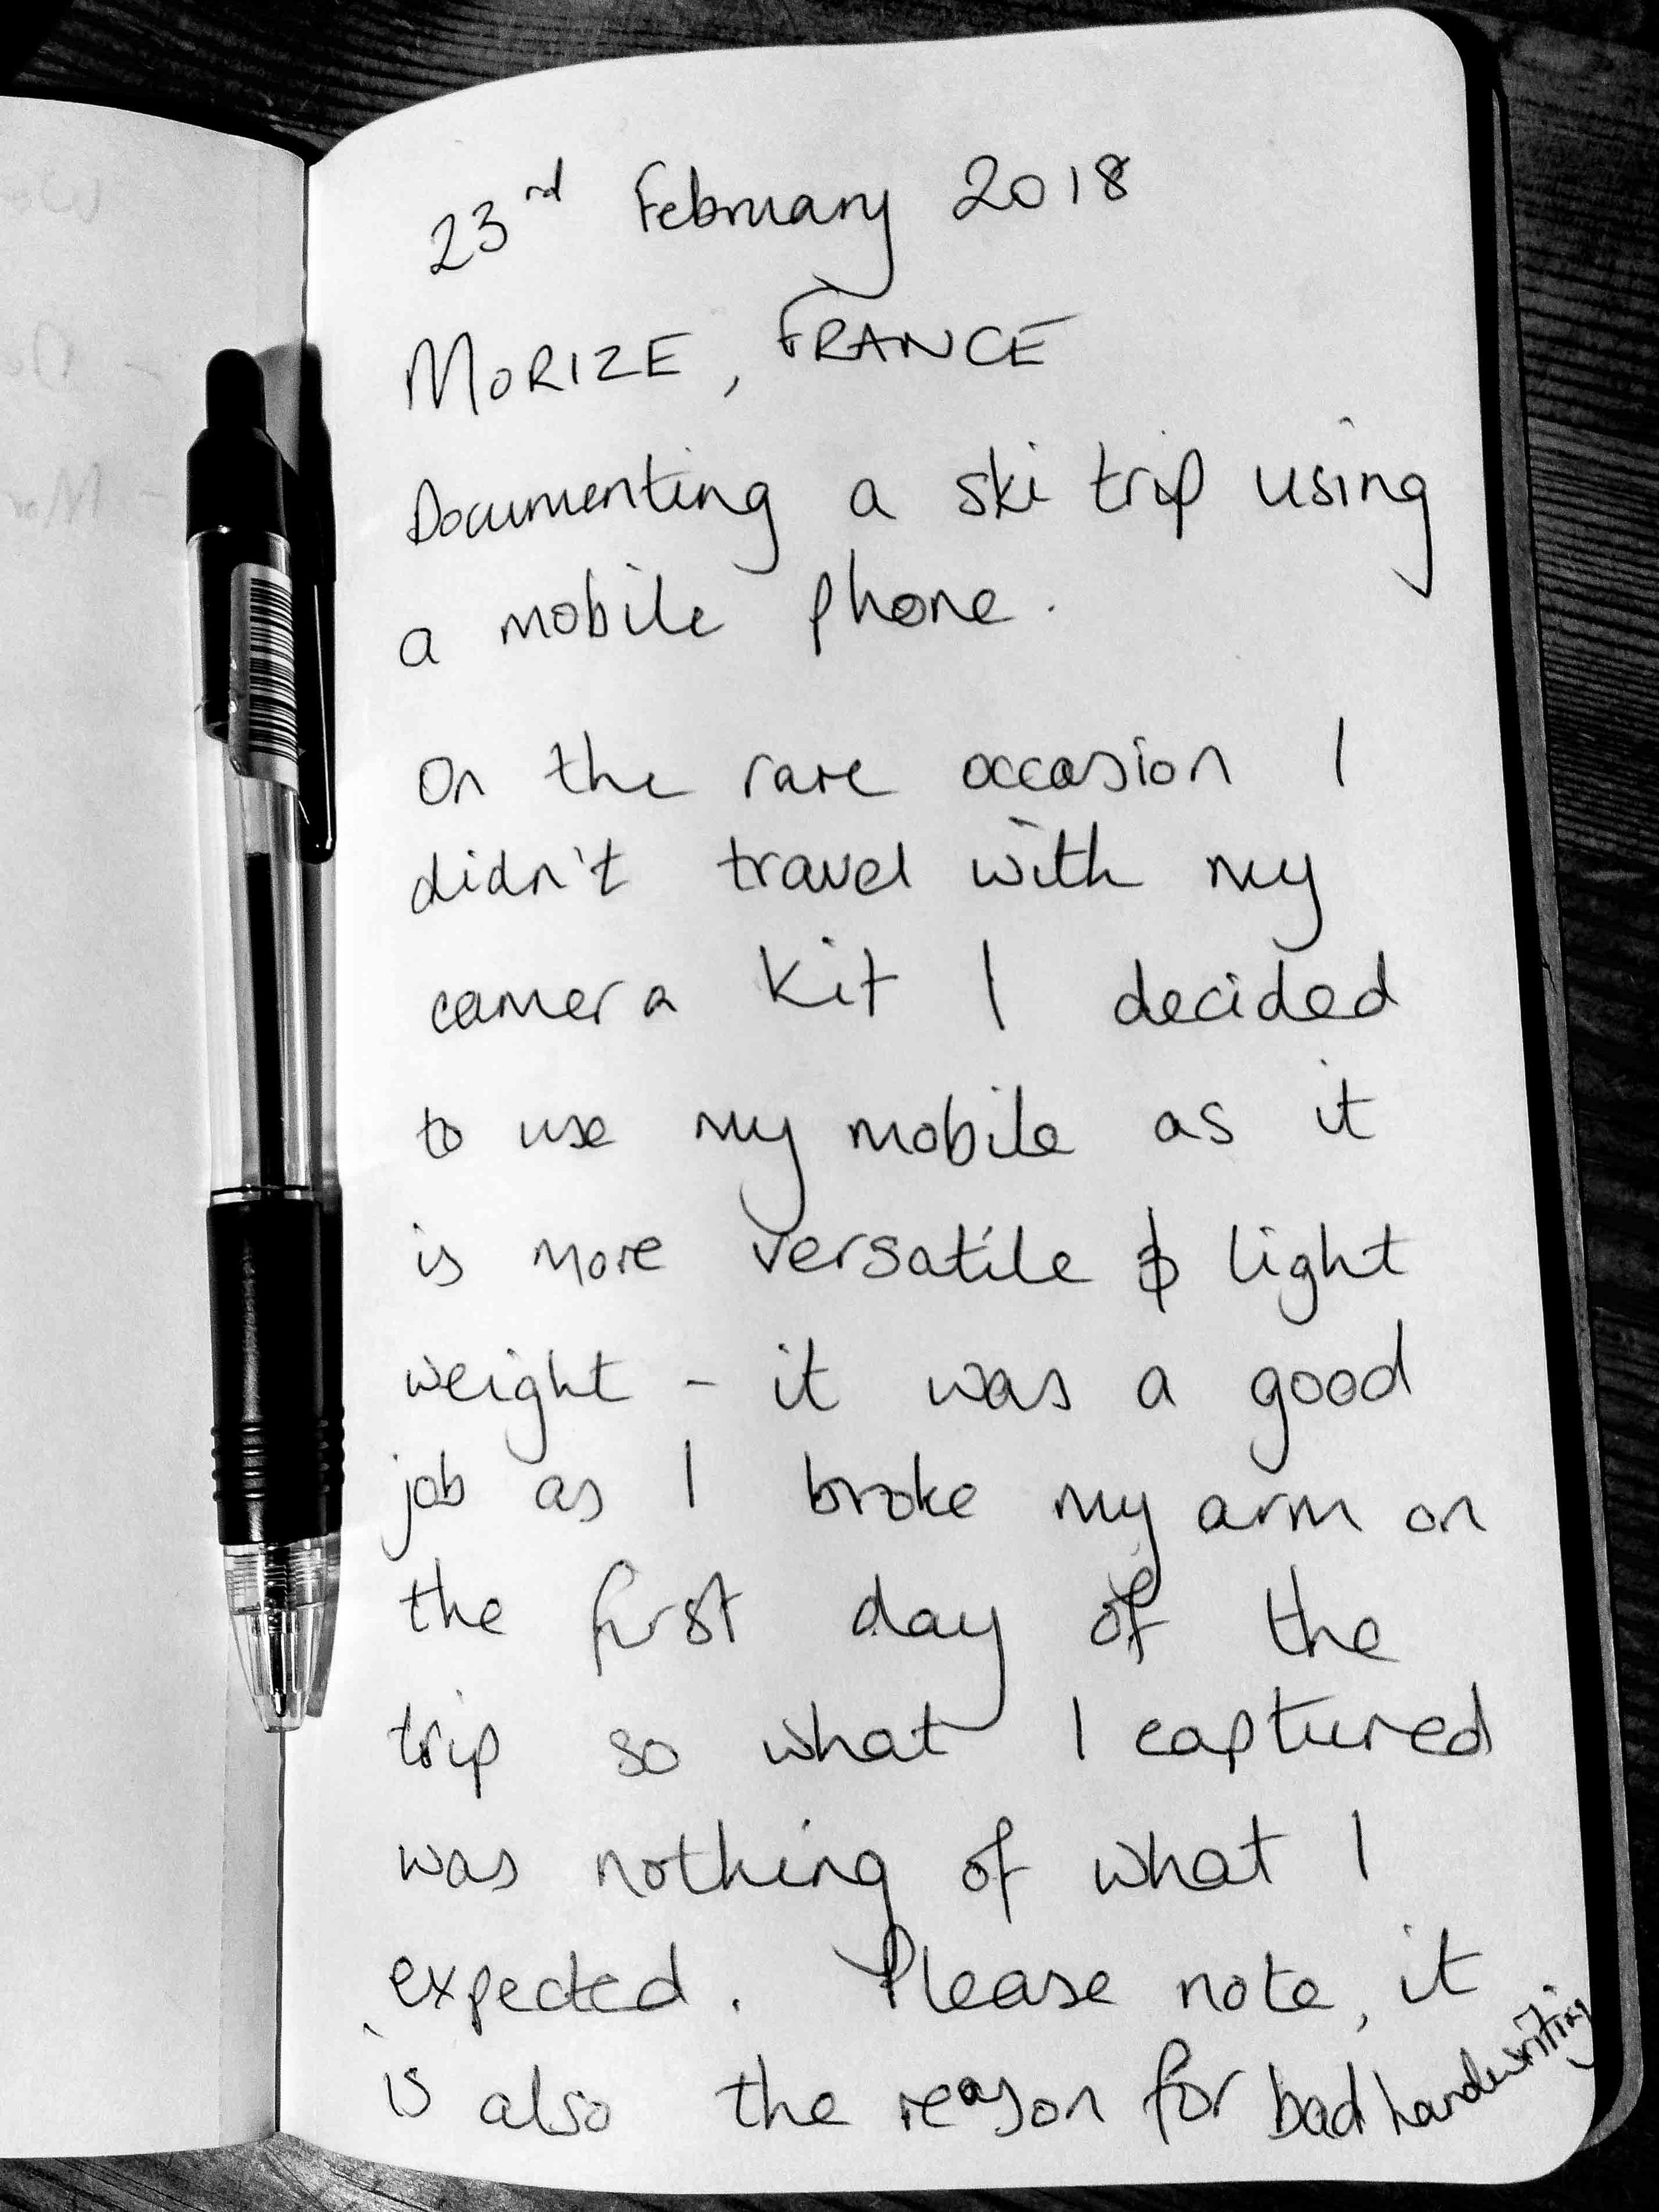 23rd February 2018
MORIZE, FRANCE
Documenting a ski trip using
a mobile phone.
On the rare occasion I
didn't travel with my
camera kit I decided
to use my mobile as it
is more versatile & light
weight - it was a good
job as I broke my arm on
the first day of the
trip so what I captured
was nothing of what I
expected. Please note, it
is also the reason for bad handwriting